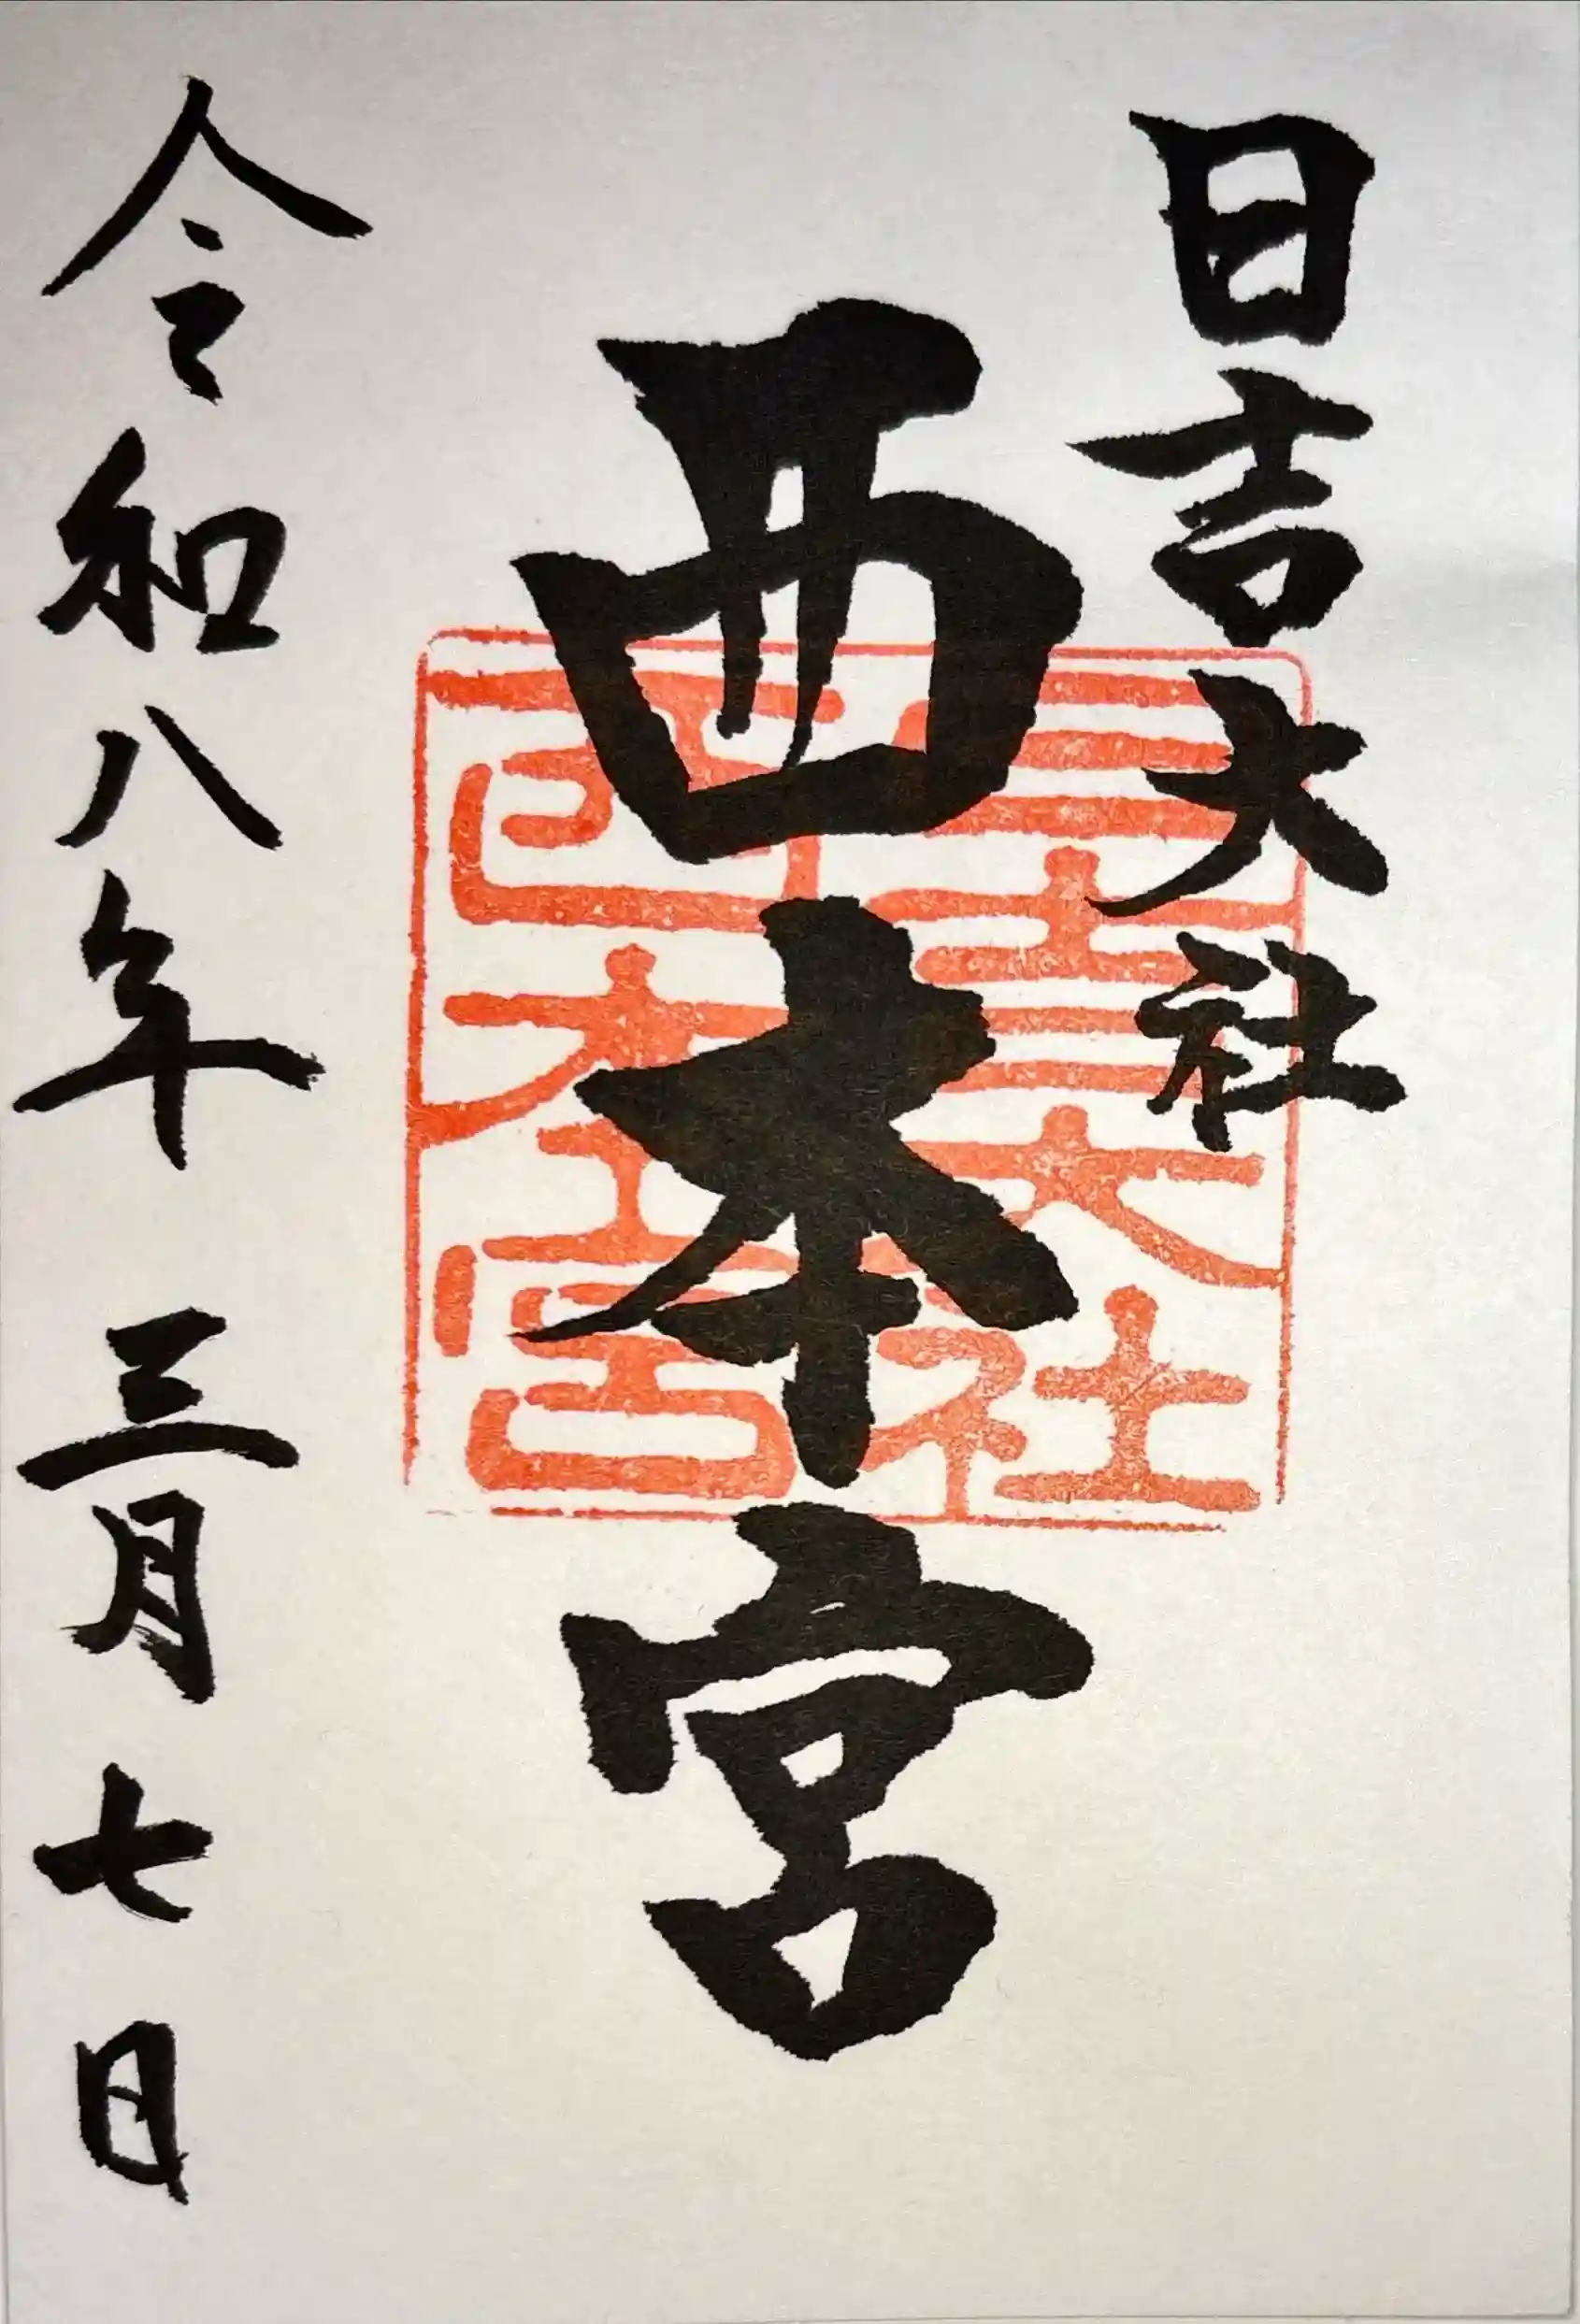 日吉大社
西本宮
日吉大社
西本宮
令和八年 三月 七日